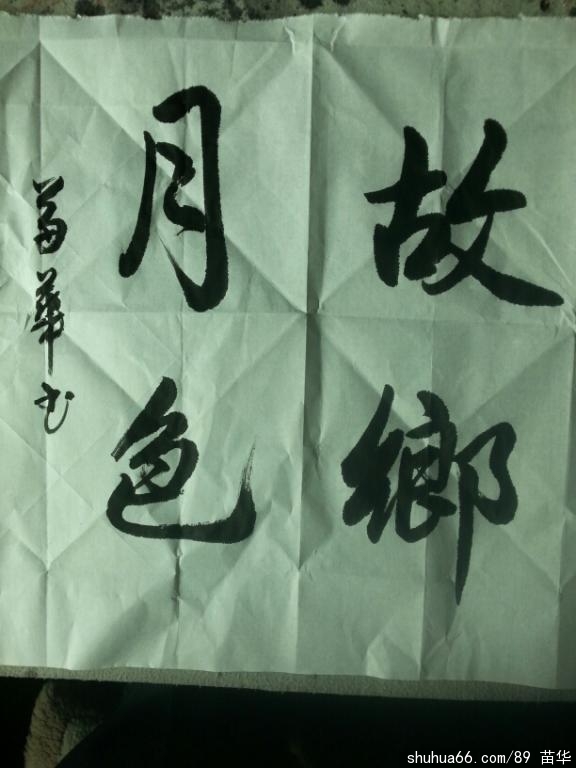 故鄉
月色
苗華书
shuhua66.com/89 苗华